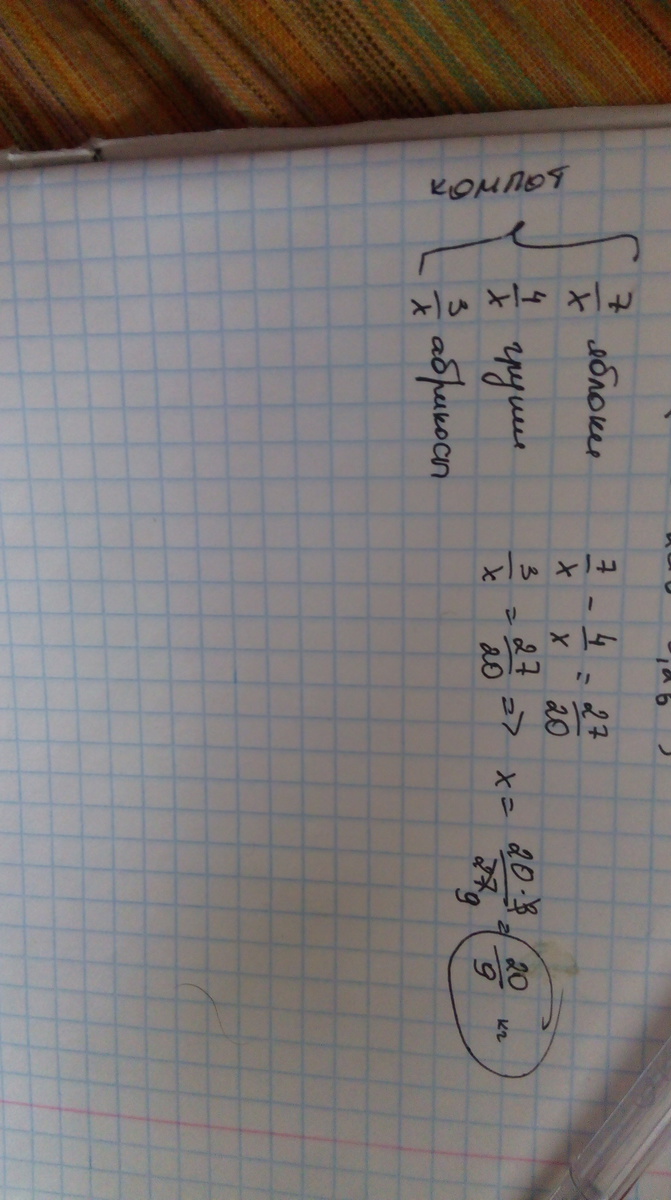 компот
7/x яблоки
4/x груши
3/x абрикосы
7/x - 4/x = 27/20
3/x = 27/20 => x = 20·3/27 9 = 20/9 кг